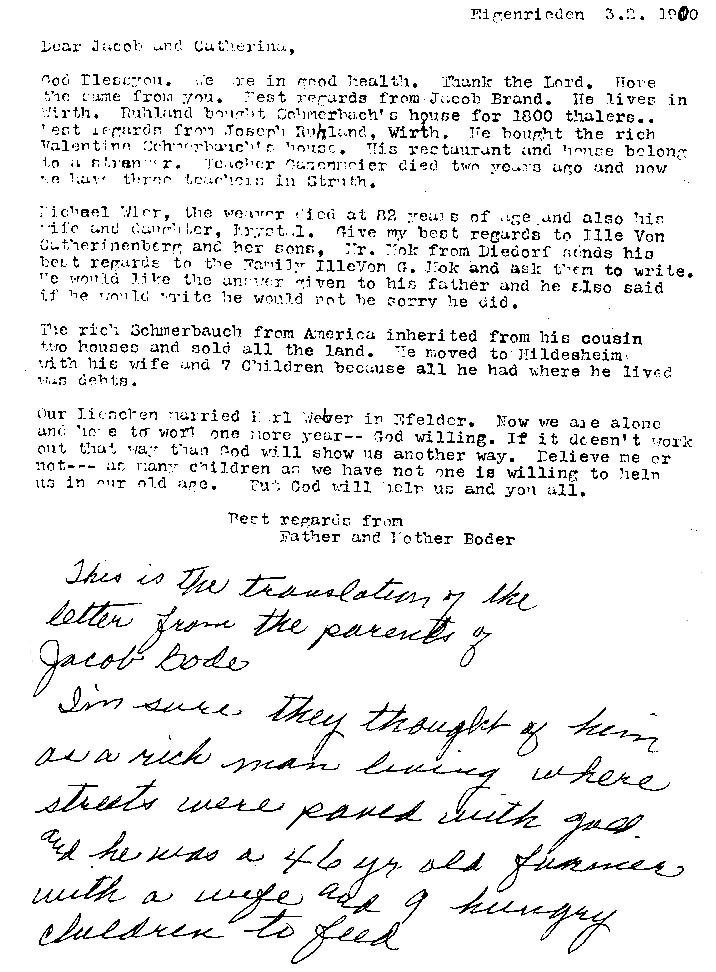 Eigenrieden 3.2. 1900
Dear Jacob and Catherina,
God Blessyou. We are in good health. Thank the Lord. Hope
the same from you. Best regards from Jacob Brand. He lives in
Wirth. Ruhland bought Schmerbach's house for 1800 thalers..
Best regards from Joseph Ruhland, Wirth. He bought the rich
Valentine Schmerbaucht's house. His restaurant and house belong
to a stranger. Teacher died two years ago and now
we have three teachers in Struth.
Michael Wier, the weaver died at 82 years of age and also his
wife and daughter, Krystal. Give my best regards to Ille Von
Catherinenberg and her sons, Mr. Hok from Diedorf sends his
best regards to the Family IlleVon G. Hok and ask them to write.
He would like the answer given to his father and he also said
if he would write he would not be sorry he did.
The rich Schmerbauch from America inherited from his cousin
two houses and sold all the land. He moved to Hildesheim
with his wife and 7 Children because all he had where he lived
was debts.
Our Lieschen married Karl Weber in Efelder. Now we are alone
and have to work one more year-- God willing. If it doesn't work
out that way than God will show us another way. Believe me or
not--- as many children as we have not one is willing to help
us in our old age. But God will help us and you all.
Best regards from
Father and Mother Boder
This is the translation of the
letter from the parents of
Jacob Bode
I'm sure they thought of him
as a rich man living where
streets were paved with gold.
and he was a 46 yr old farmer
with a wife and 9 hungry
children to feed